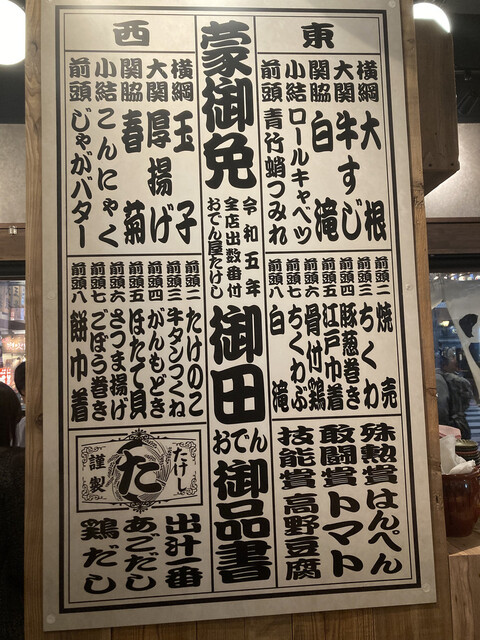 東
横綱 大根
大関 牛すじ
関脇 白滝
小結 ロールキャベツ
前頭 青竹蛸つみれ
前頭二 焼売
前頭三 ちくわ
前頭四 豚葱巻き
前頭五 江戸巾着
前頭六 骨付鶏
前頭七 ちくわぶ
前頭八 白滝
殊勲賞 はんぺん
敢闘賞 トマト
技能賞 高野豆腐
蒙御免
令和五年
全店出数番付
おでん屋たけし
御田
おでん
御品書
西
横綱 玉子
大関 厚揚げ
関脇 春菊
小結 こんにゃく
前頭 じゃがバター
前頭二 たけのこ
前頭三 牛タンつくね
前頭四 がんもどき
前頭五 ほたて貝
前頭六 さつま揚げ
前頭七 ごぼう巻き
前頭八 餅巾着
たけし
た
謹製
出汁一番
あごだし
鶏だし